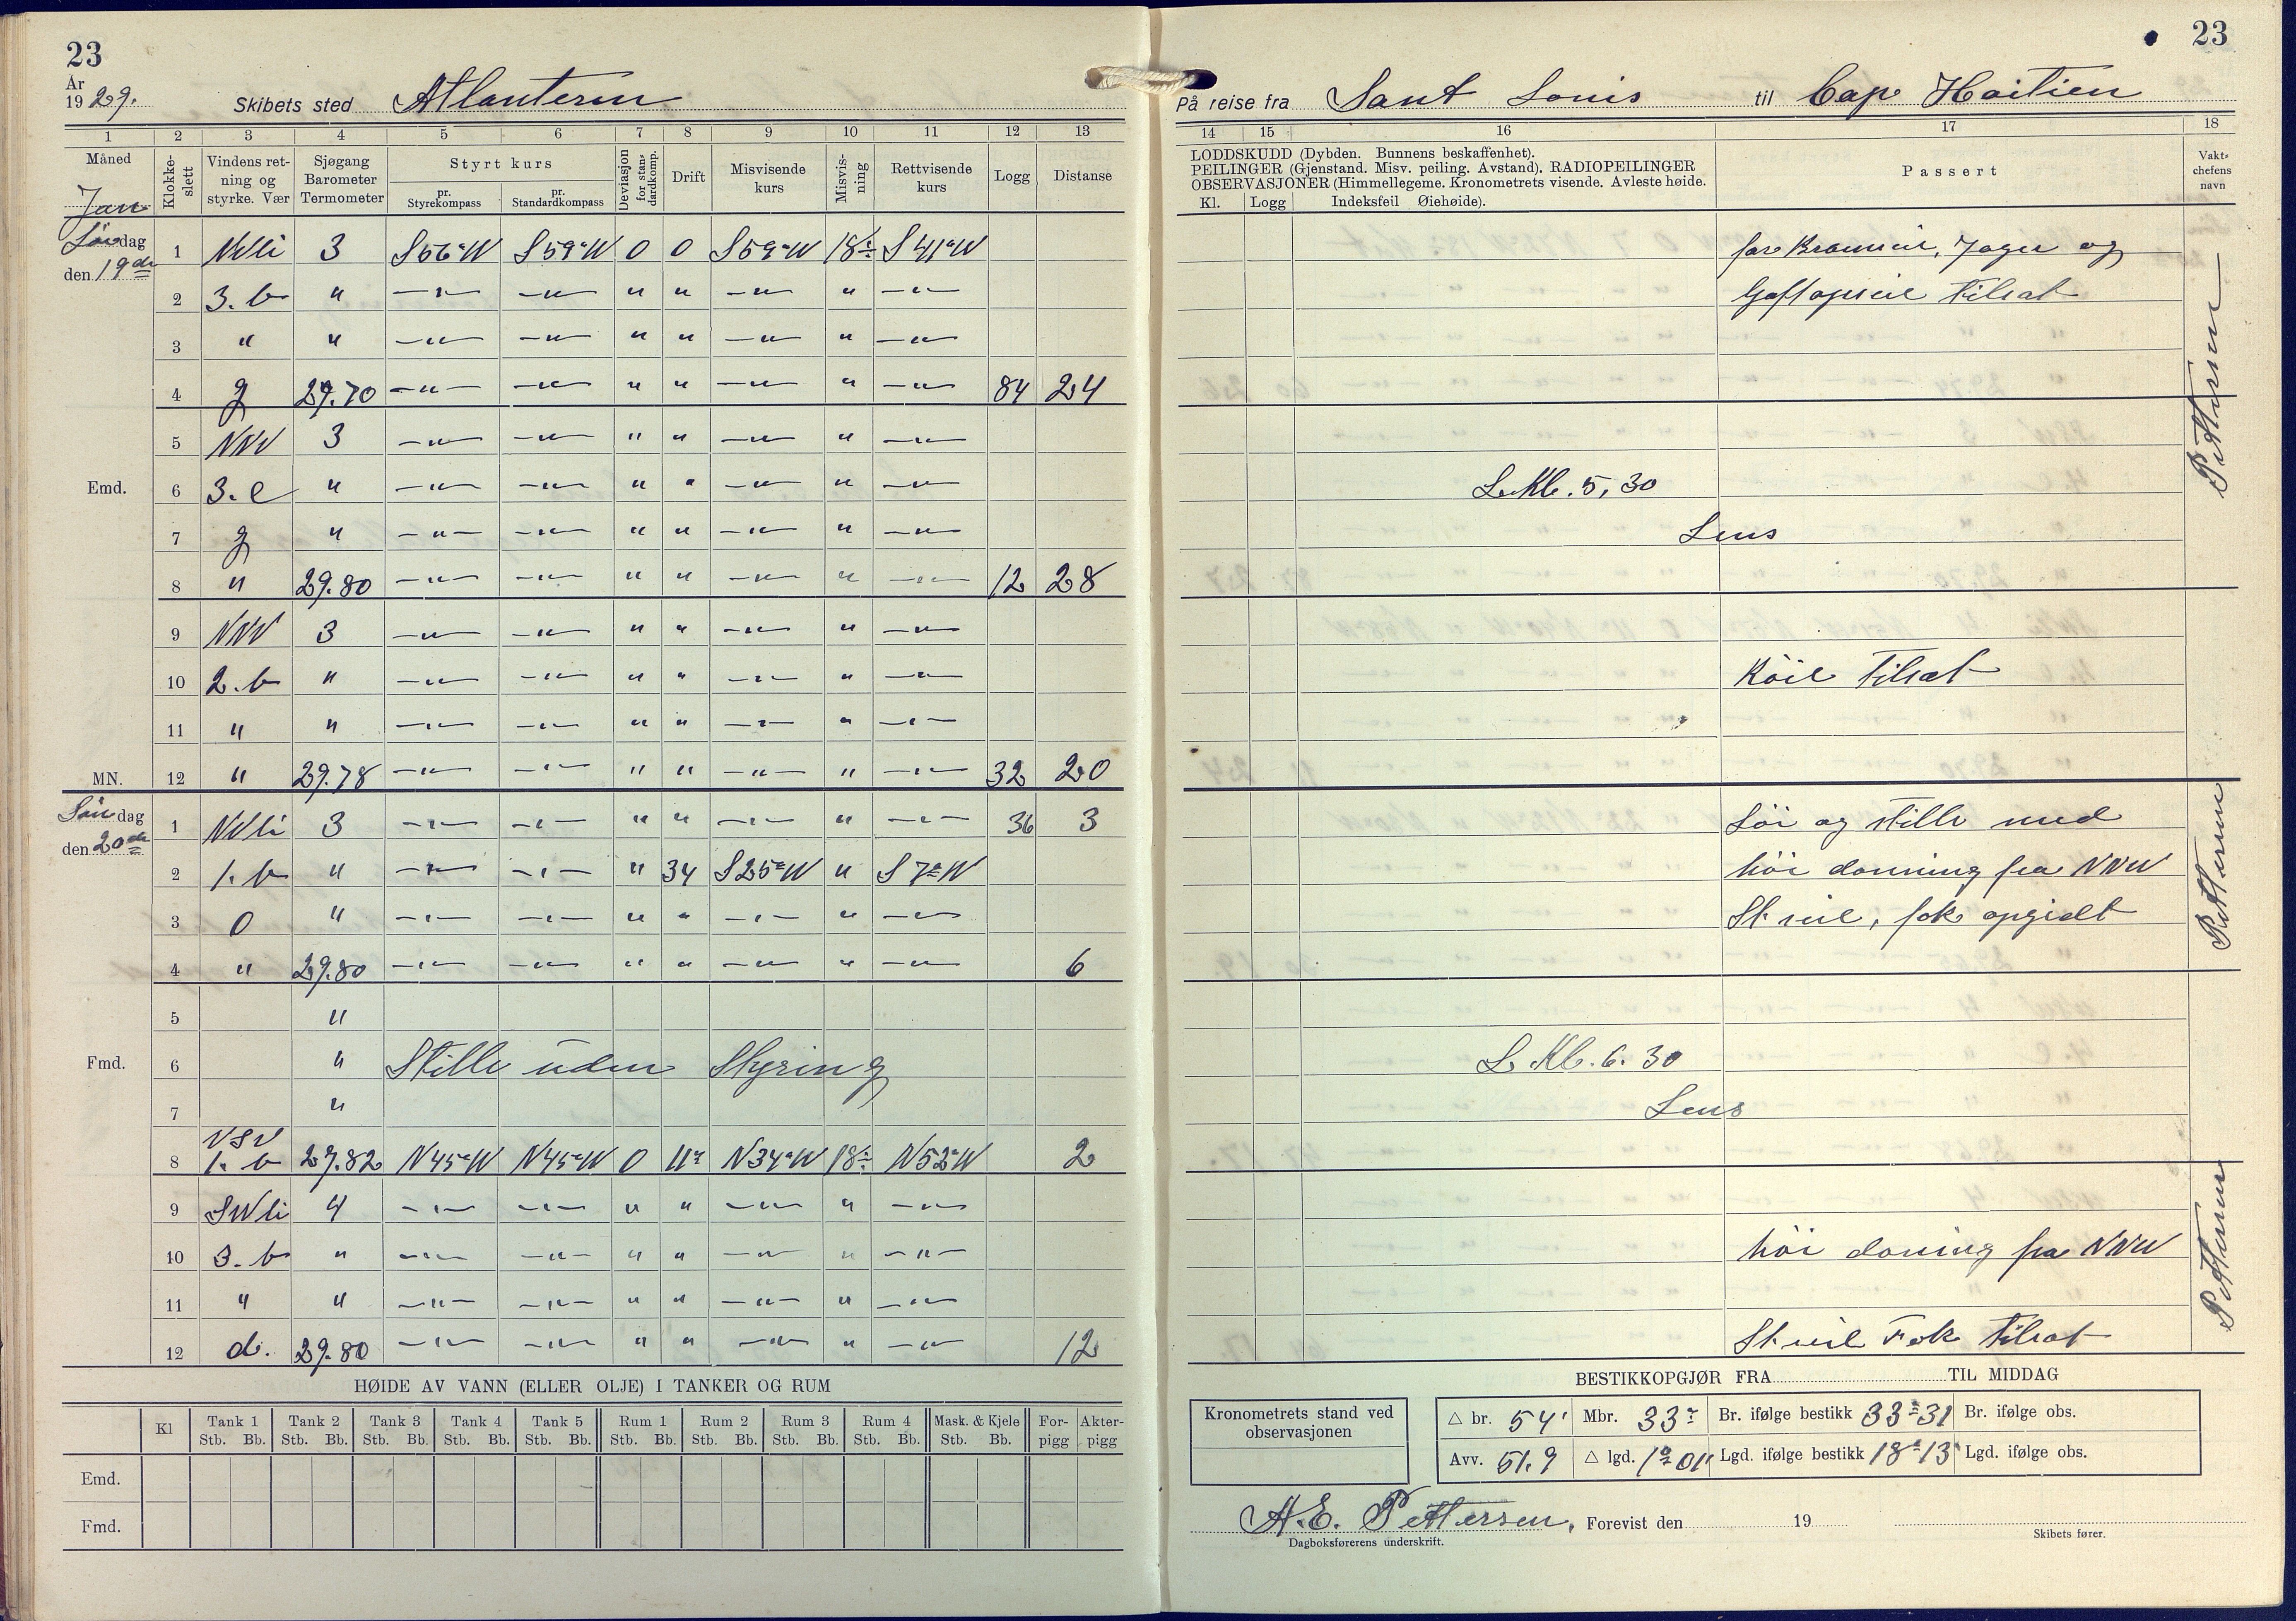 23
År
19 29. Skibets sted Atlanteren
1 2 3 4 5 6 7 8 9 10 11 12 13
Måned Klokkeslett Vindens retning og styrke. Vær Sjøgang Barometer Termometer Styrt kurs pr. Styrekompass pr. Standardkompass Deviasjon for standardkomp. Drift Misvisende kurs Misvisning Rettvisende kurs Logg Distanse
Jan
Lördag 1 NNli 3 S56°W S59°W 0 0 S59°W 18÷ S41°W
den 19de 2 3. b " —"— —"— " " —"— " —"—
3 " " —"— —"— " " —"— " —"—
4 g 29.70 —"— —"— " " —"— " —"— 84 24
5 NNV 3 —"— —"— " " —"— " —"—
Emd. 6 3. c " —"— —"— " " —"— " —"—
7 g " —"— —"— " " —"— " —"—
8 " 29.80 —"— —"— " " —"— " —"— 12 28
9 NNV 3 —"— —"— " " —"— " —"—
10 2. b " —"— —"— " " —"— " —"—
11 " " —"— —"— " " —"— " —"—
MN. 12 " 29.78 —"— —"— " " —"— " —"— 32 20
Søndag 1 NNli 3 —"— —"— " " —"— " —"— 36 3
den 20de 2 1. b " —"— —"— " 34 S25°W " S7°W
3 0 " —"— —"— " " —"— " —"—
4 " 29.80 —"— —"— " " —"— " —"— 6
5 "
Fmd. 6 " Stille uden Styring
7 "
8 VSV 1. b 29.82 N45°W N45°W 0 11° N34°W 18÷ N52°W 2
9 SWli 4 —"— —"— " " —"— " —"—
10 3. b " —"— —"— " " —"— " —"—
11 " " —"— —"— " " —"— " —"—
12 d. 29.80 —"— —"— " " —"— " —"— 12
HØIDE AV VANN (ELLER OLJE) I TANKER OG RUM
Kl Tank 1 Tank 2 Tank 3 Tank 4 Tank 5 Rum 1 Rum 2 Rum 3 Rum 4 Mask. & Kjele For- Akter-
Stb. Bb. Stb. Bb. Stb. Bb. Stb. Bb. Stb. Bb. Stb. Bb. Stb. Bb. Stb. Bb. Stb. Bb. Stb. Bb. pigg pigg
Emd.
Fmd.
23
På reise fra Sant Louis til Cap Haitien
14 15 16 17 18
LODDSKUDD (Dybden. Bunnens beskaffenhet).
PEILINGER (Gjenstand. Misv. peiling. Avstand). RADIOPEILINGER
OBSERVASJONER (Himmellegeme. Kronometrets visende. Avleste høide.
Kl. Logg Indeksfeil Øiehøide).
Passert
Vaktchefens navn
fore Bramseil, Jager og
Gaftopseil tilsat
Pettersen
L. Kl. 5,30
Lens
Röil tilsat
Löi og stille med
höi donning fra NNW
St seil, fok opgidt
Pettersen
L. Kl. 6. 30
Lens
höi doning fra NNW
St seil Fok tilsat
Pettersen
BESTIKKOPGJØR FRA TIL MIDDAG
Kronometrets stand ved
observasjonen
△ br. 54' Mbr. 33° Br. ifølge bestikk 33°31 Br. ifølge obs.
Avv. 51.9 △ lgd. 1°01' Lgd. ifølge bestikk 18°13' Lgd. ifølge obs.
A. E. Pettersen, Forevist den 19
Dagboksførerens underskrift.
Skibets fører.